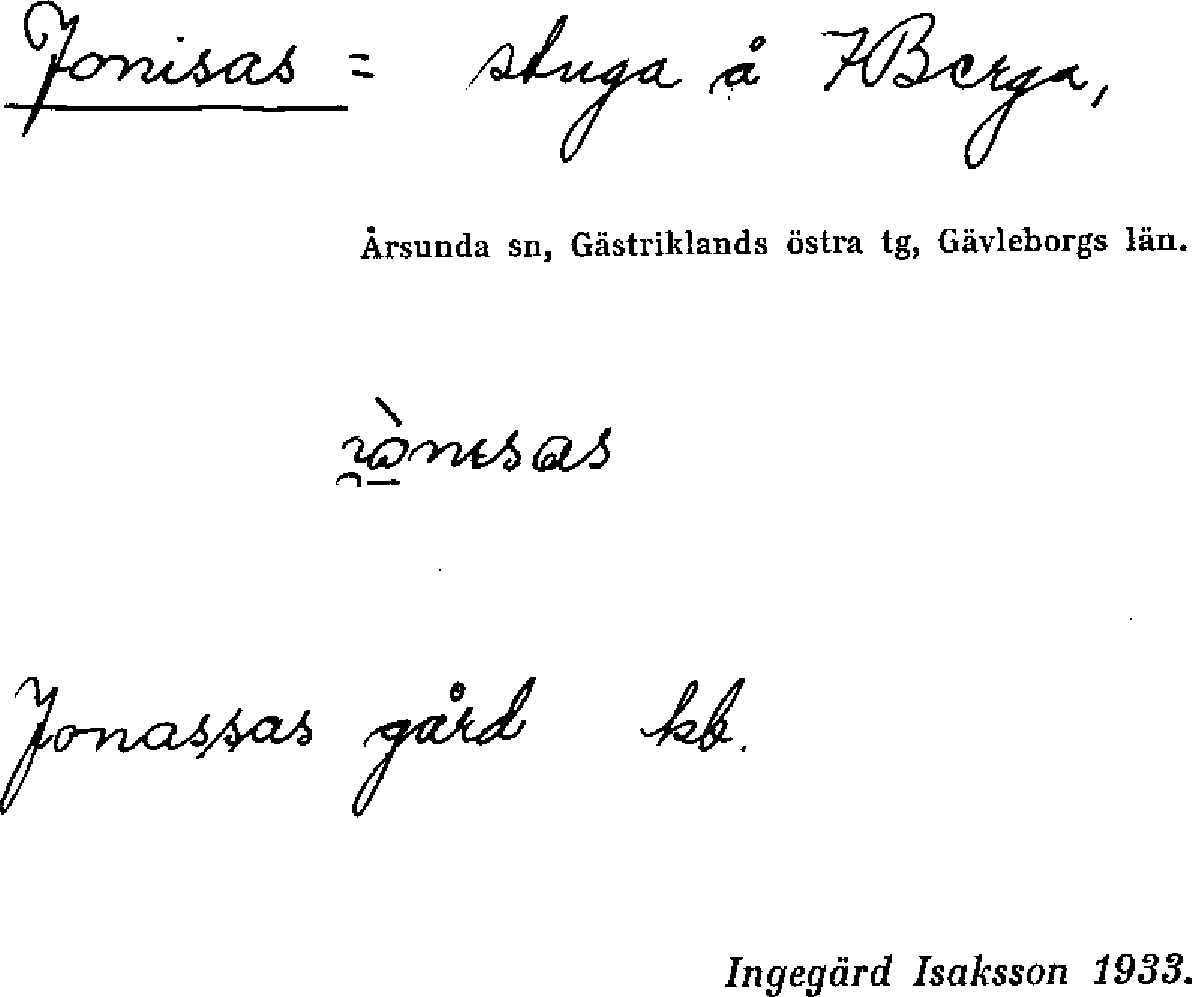 Jonisas = stuga å 7Berga,
Årsunda sn, Gästriklands östra tg, Gävleborgs län.
Jonassas gård kb.
Ingegärd Isaksson 1933.